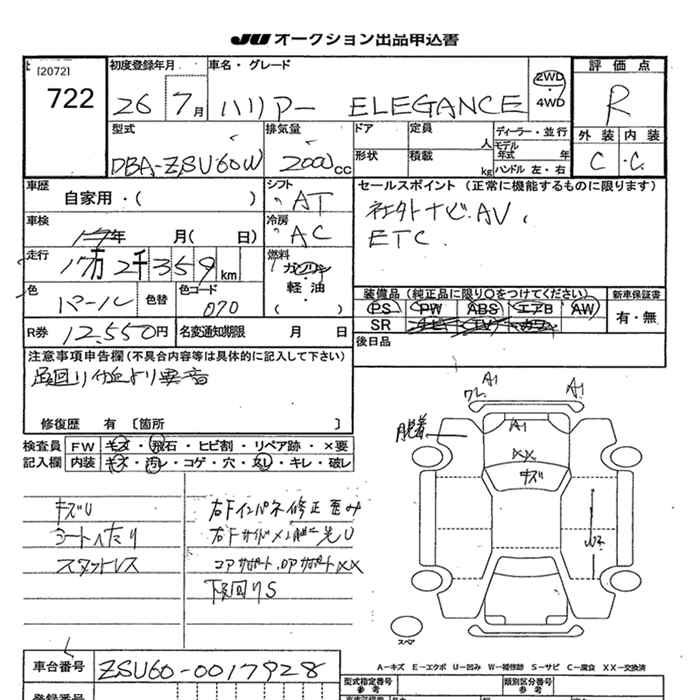 JU オークション出品申込書
[2072]
722
初度登録年月
26 7月
車名・グレード
ハリアー ELEGANCE
2WD
・
4WD
評価点
R
外装 内装
C ・C・
型式
DBA-ZSU60W
排気量
2000cc
ドア
定員 人
形状
積載 kg
ディーラー・並行
モデル年式 年
ハンドル 左・右
車歴
自家用・( )
シフト
AT
冷房
AC
セールスポイント (正常に機能するものに限ります)
社外ナビ.AV,
ETC
車検
年 月( 日)
走行
万 2千 359 km
燃料
ガソリン
・
軽油
( )
色
パール
色替
色コード
070
装備品 (純正品に限り○をつけてください)
PS PW ABS エアB AW
SR
新車保証書
有・無
R券
12,550円
名変通知期限 月 日
後日品
注意事項申告欄(不具合内容等は具体的に記入して下さい)
足廻り付近より異音
修復歴 有 〔箇所 〕
検査員
記入欄
FW キズ・飛石・ヒビ割・リペア跡・×要
内装 キズ・汚レ・コゲ・穴・スレ・キレ・破レ
キズU
シートヘたり
スタットレス
右Fインパネ修正歪み
コアサポート
下廻りS
ワレ A1
A1
脱着
A1
XX
キズ
W2
スペア
A―キズ E―エクボ U―凹み W―補修跡 S―サビ C―腐食 XX―交換済
車台番号
ZSU60-0017928
登録番号
型式指定番号
参考
類別区分番号
参考